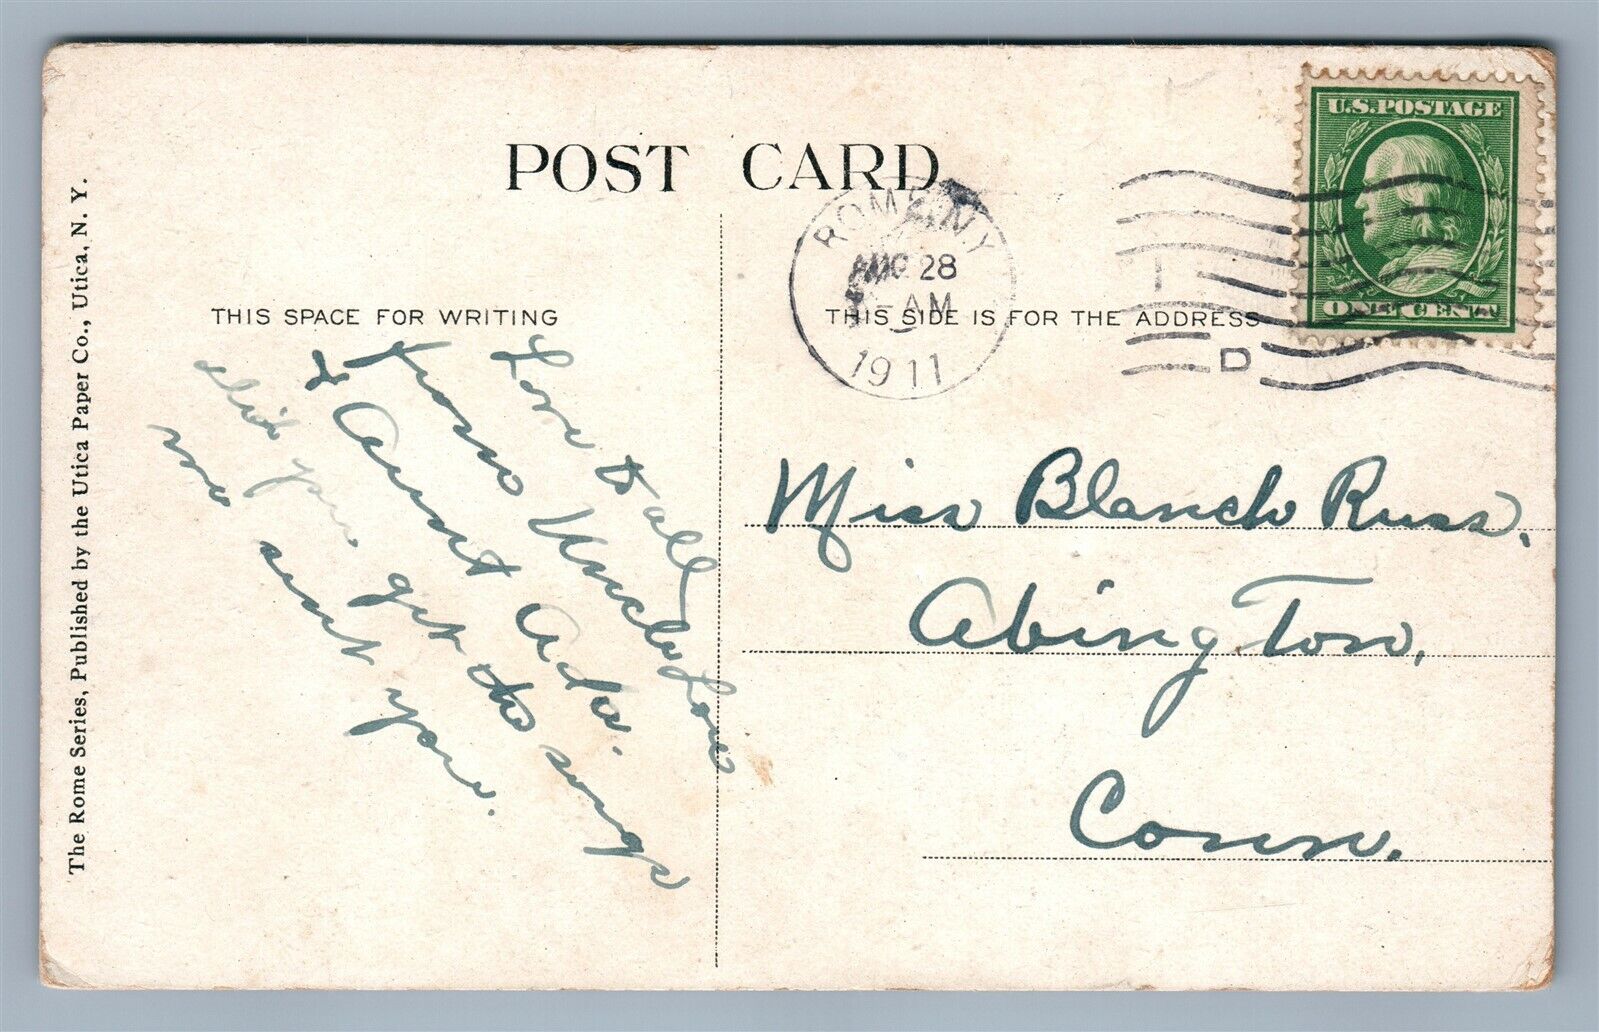 POST CARD
THIS SPACE FOR WRITING
THIS SIDE IS FOR THE ADDRESS
The Rome Series, Published by the Utica Paper Co., Utica, N. Y.
U.S. POSTAGE
ONE CENT
ROME N.Y.
AUG 28
AM
1911
D
Love to all
from Uncle Lou
& Aunt Ada.
did you get the songs
we sent you.
Miss Blanch Russ.
Abington,
Conn.